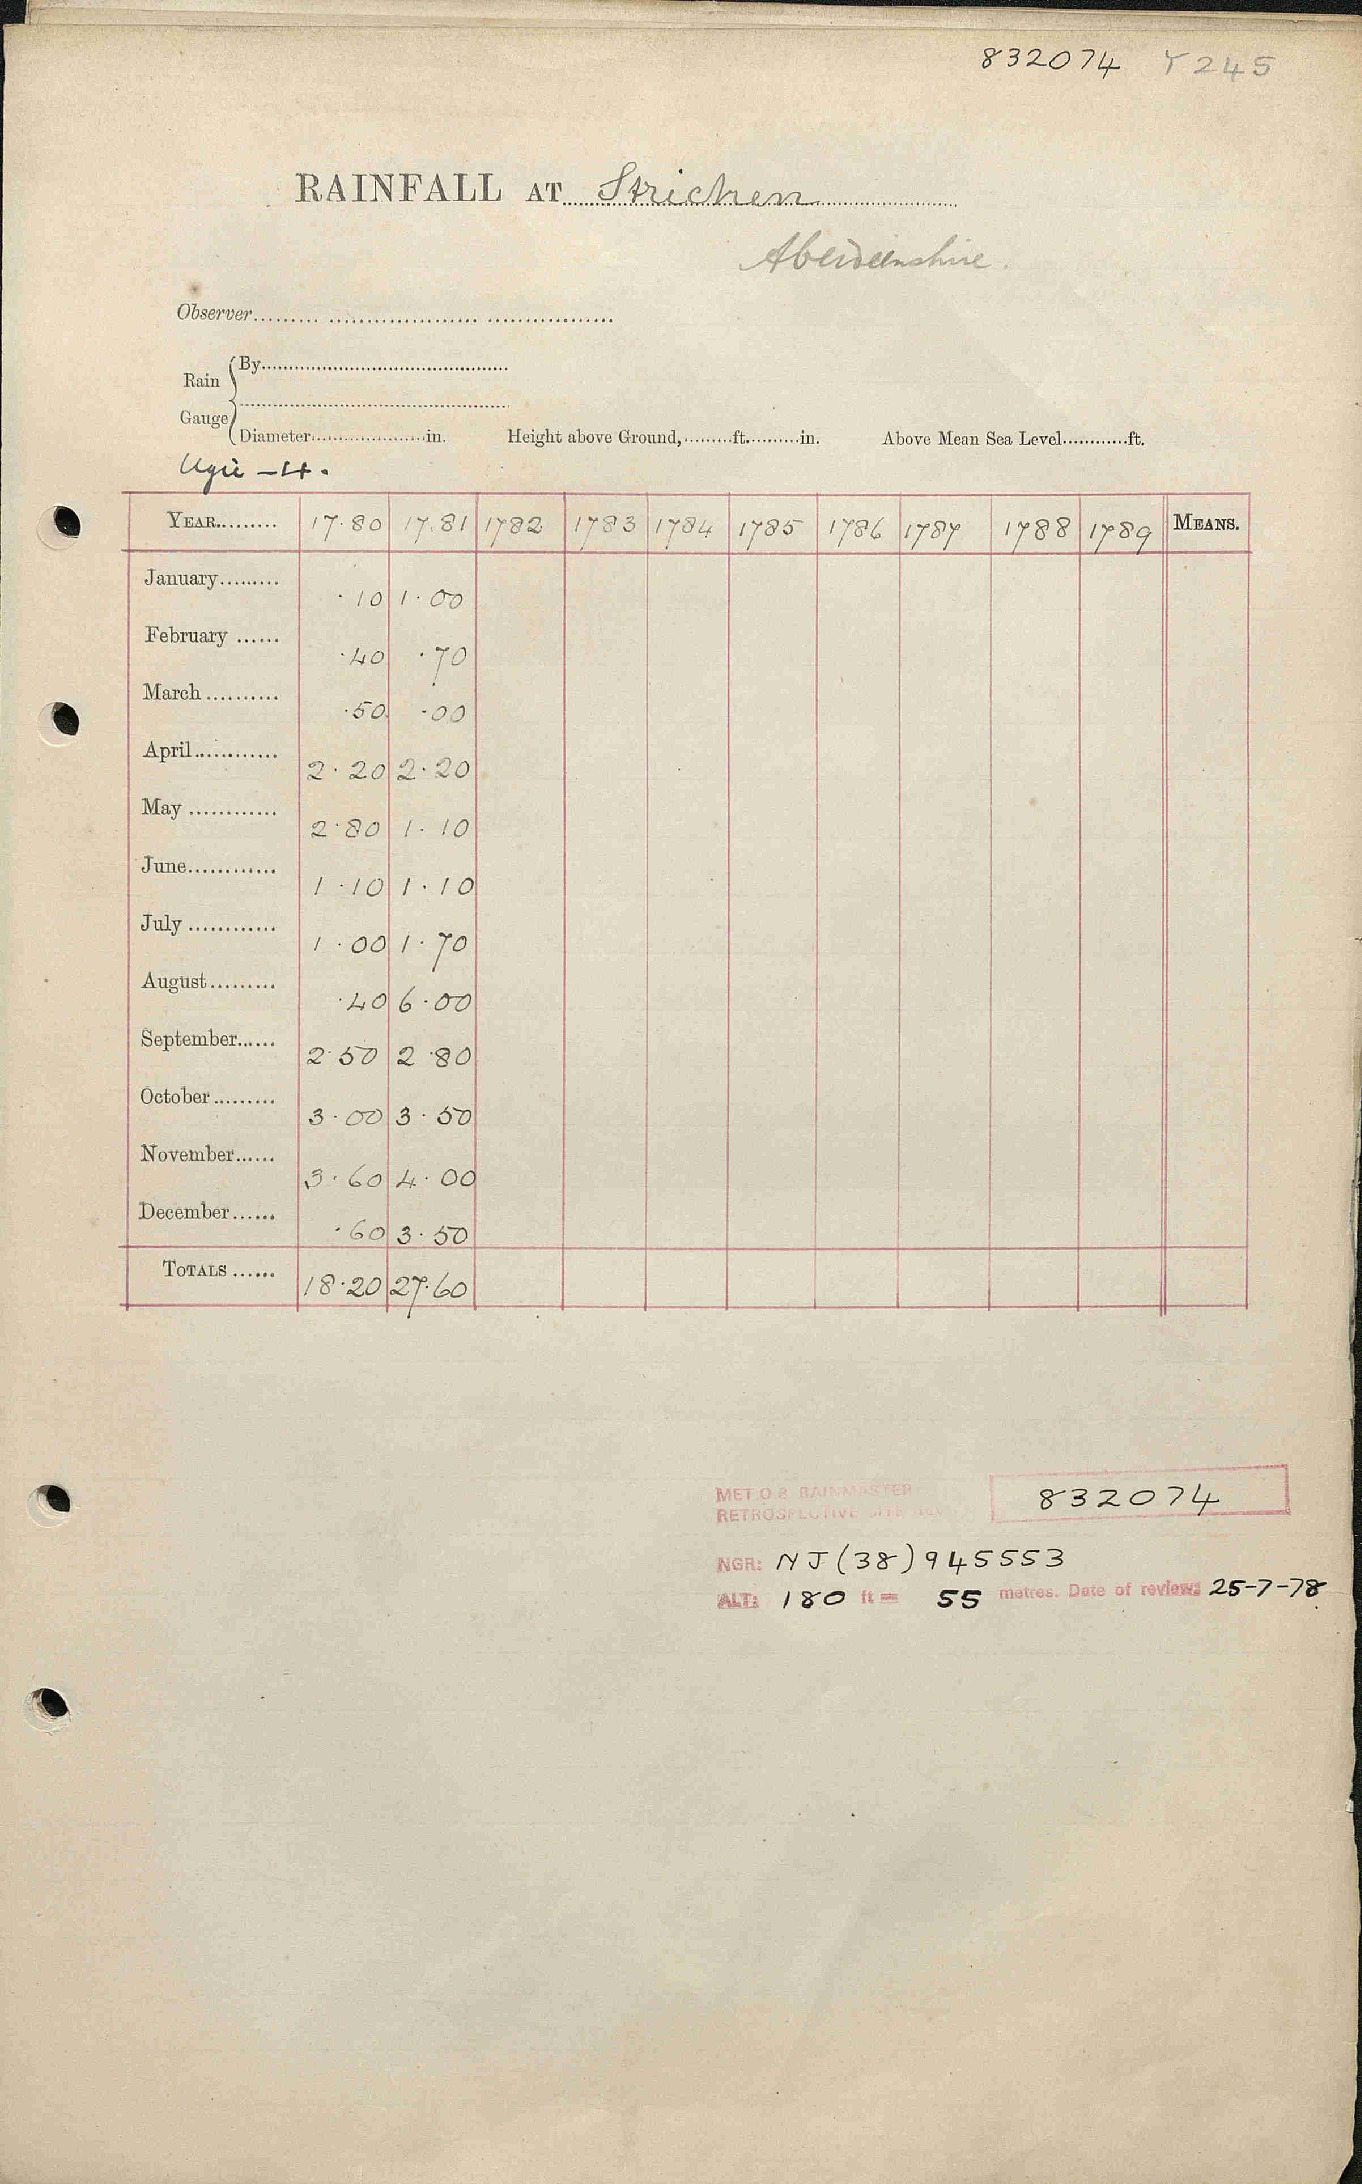 832074 Y245
RAINFALL AT Strichen
Aberdeenshire.
Observer
Rain Gauge
By
Diameter in. Height above Ground, ft. in. Above Mean Sea Level ft.
Ugie - 4.
YEAR 17.80 17.81 1782 1783 1784 1785 1786 1787 1788 1789 MEANS.
January ·10 1·00
February ·40 ·70
March ·50 ·00
April 2·20 2·20
May 2·80 1·10
June 1·10 1·10
July 1·00 1·70
August ·40 6·00
September 2·50 2·80
October 3·00 3·50
November 3·60 4·00
December ·60 3·50
TOTALS 18·20 27·60
MET O 8 RAINMASTER
RETROSPECTIVE SITE 832074
NGR: NJ(38)945553
ALT: 180 ft = 55 metres. Date of review: 25-7-78